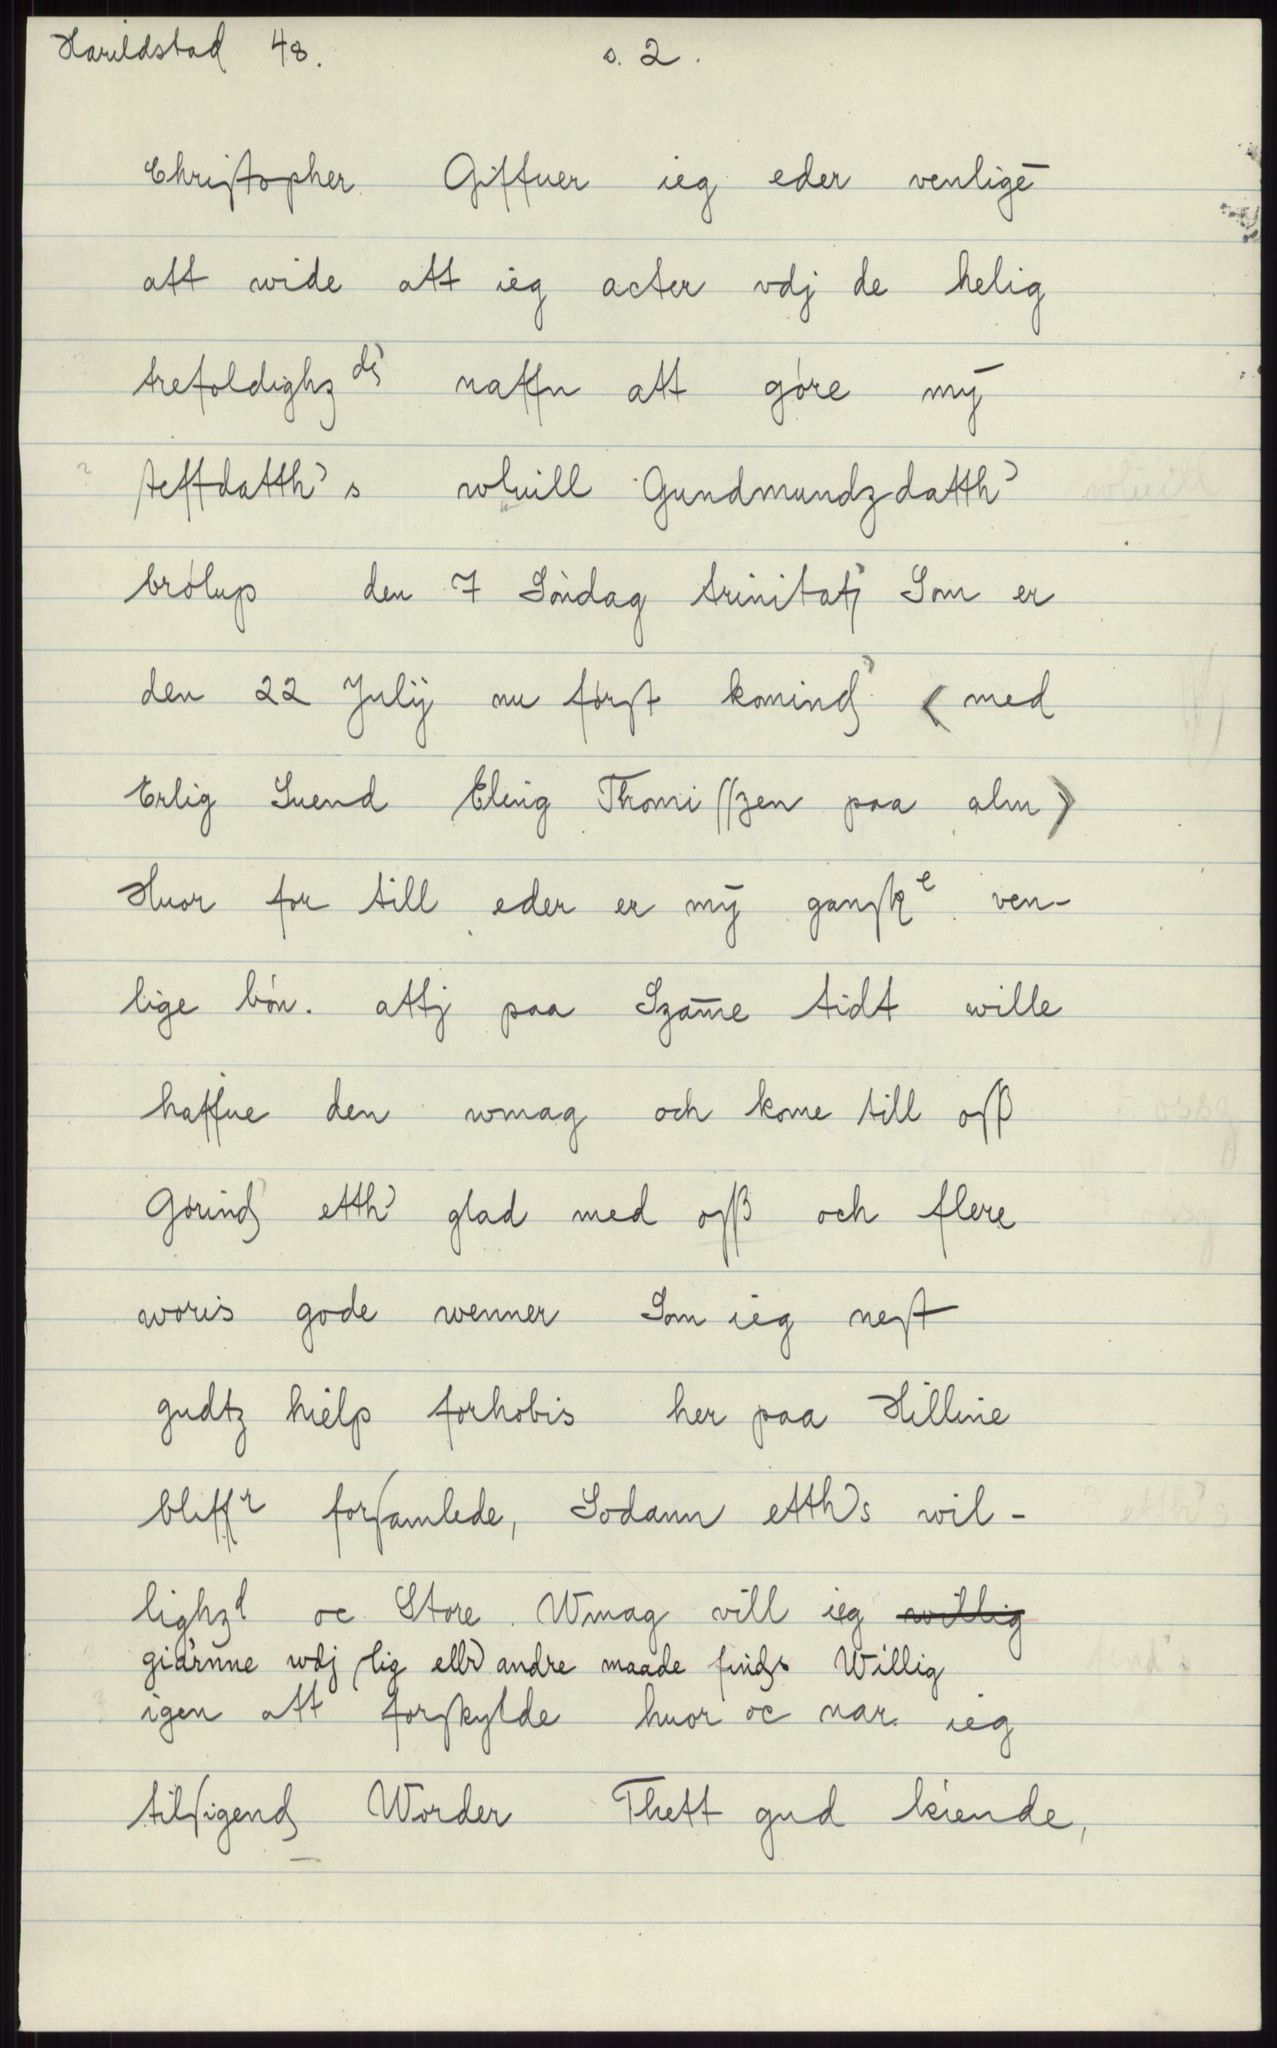 Harildstad 48. s. 2.
Chriſtopher Giffuer ieg eder venligē
att wide att ieg acter vdj de helig
trefoldighz dꝫ naffn att göre mȳ
ſteffdatth's whuill Gundmundzdatth'
brölup den 7 Söndag trinitatꝭ Som er
den 22 Julij nu först komindꝭ < med
Erlig Suend Eling Thomiſſzen paa alm >
Huor for till eder er mȳ ganſkᵉ ven-
lige bön. attj paa Szam̄e tidt wille
haffue den wmag och kome till oſß
Görindꝭ etth' glad med oſß och flere
woris gode wenner Som ieg neſt
gudtz hielp forhobis her paa Hilline
bliffʳ forſamlede, Sodann etth's wil-
lighzᵈ oc Store Wmag vill ieg willig
giärnne wdj lig ellr andre maade findꝭ Willig
igen att forſkylde huor oc nar ieg
tilſigendꝭ Worder Thett gud kiende,